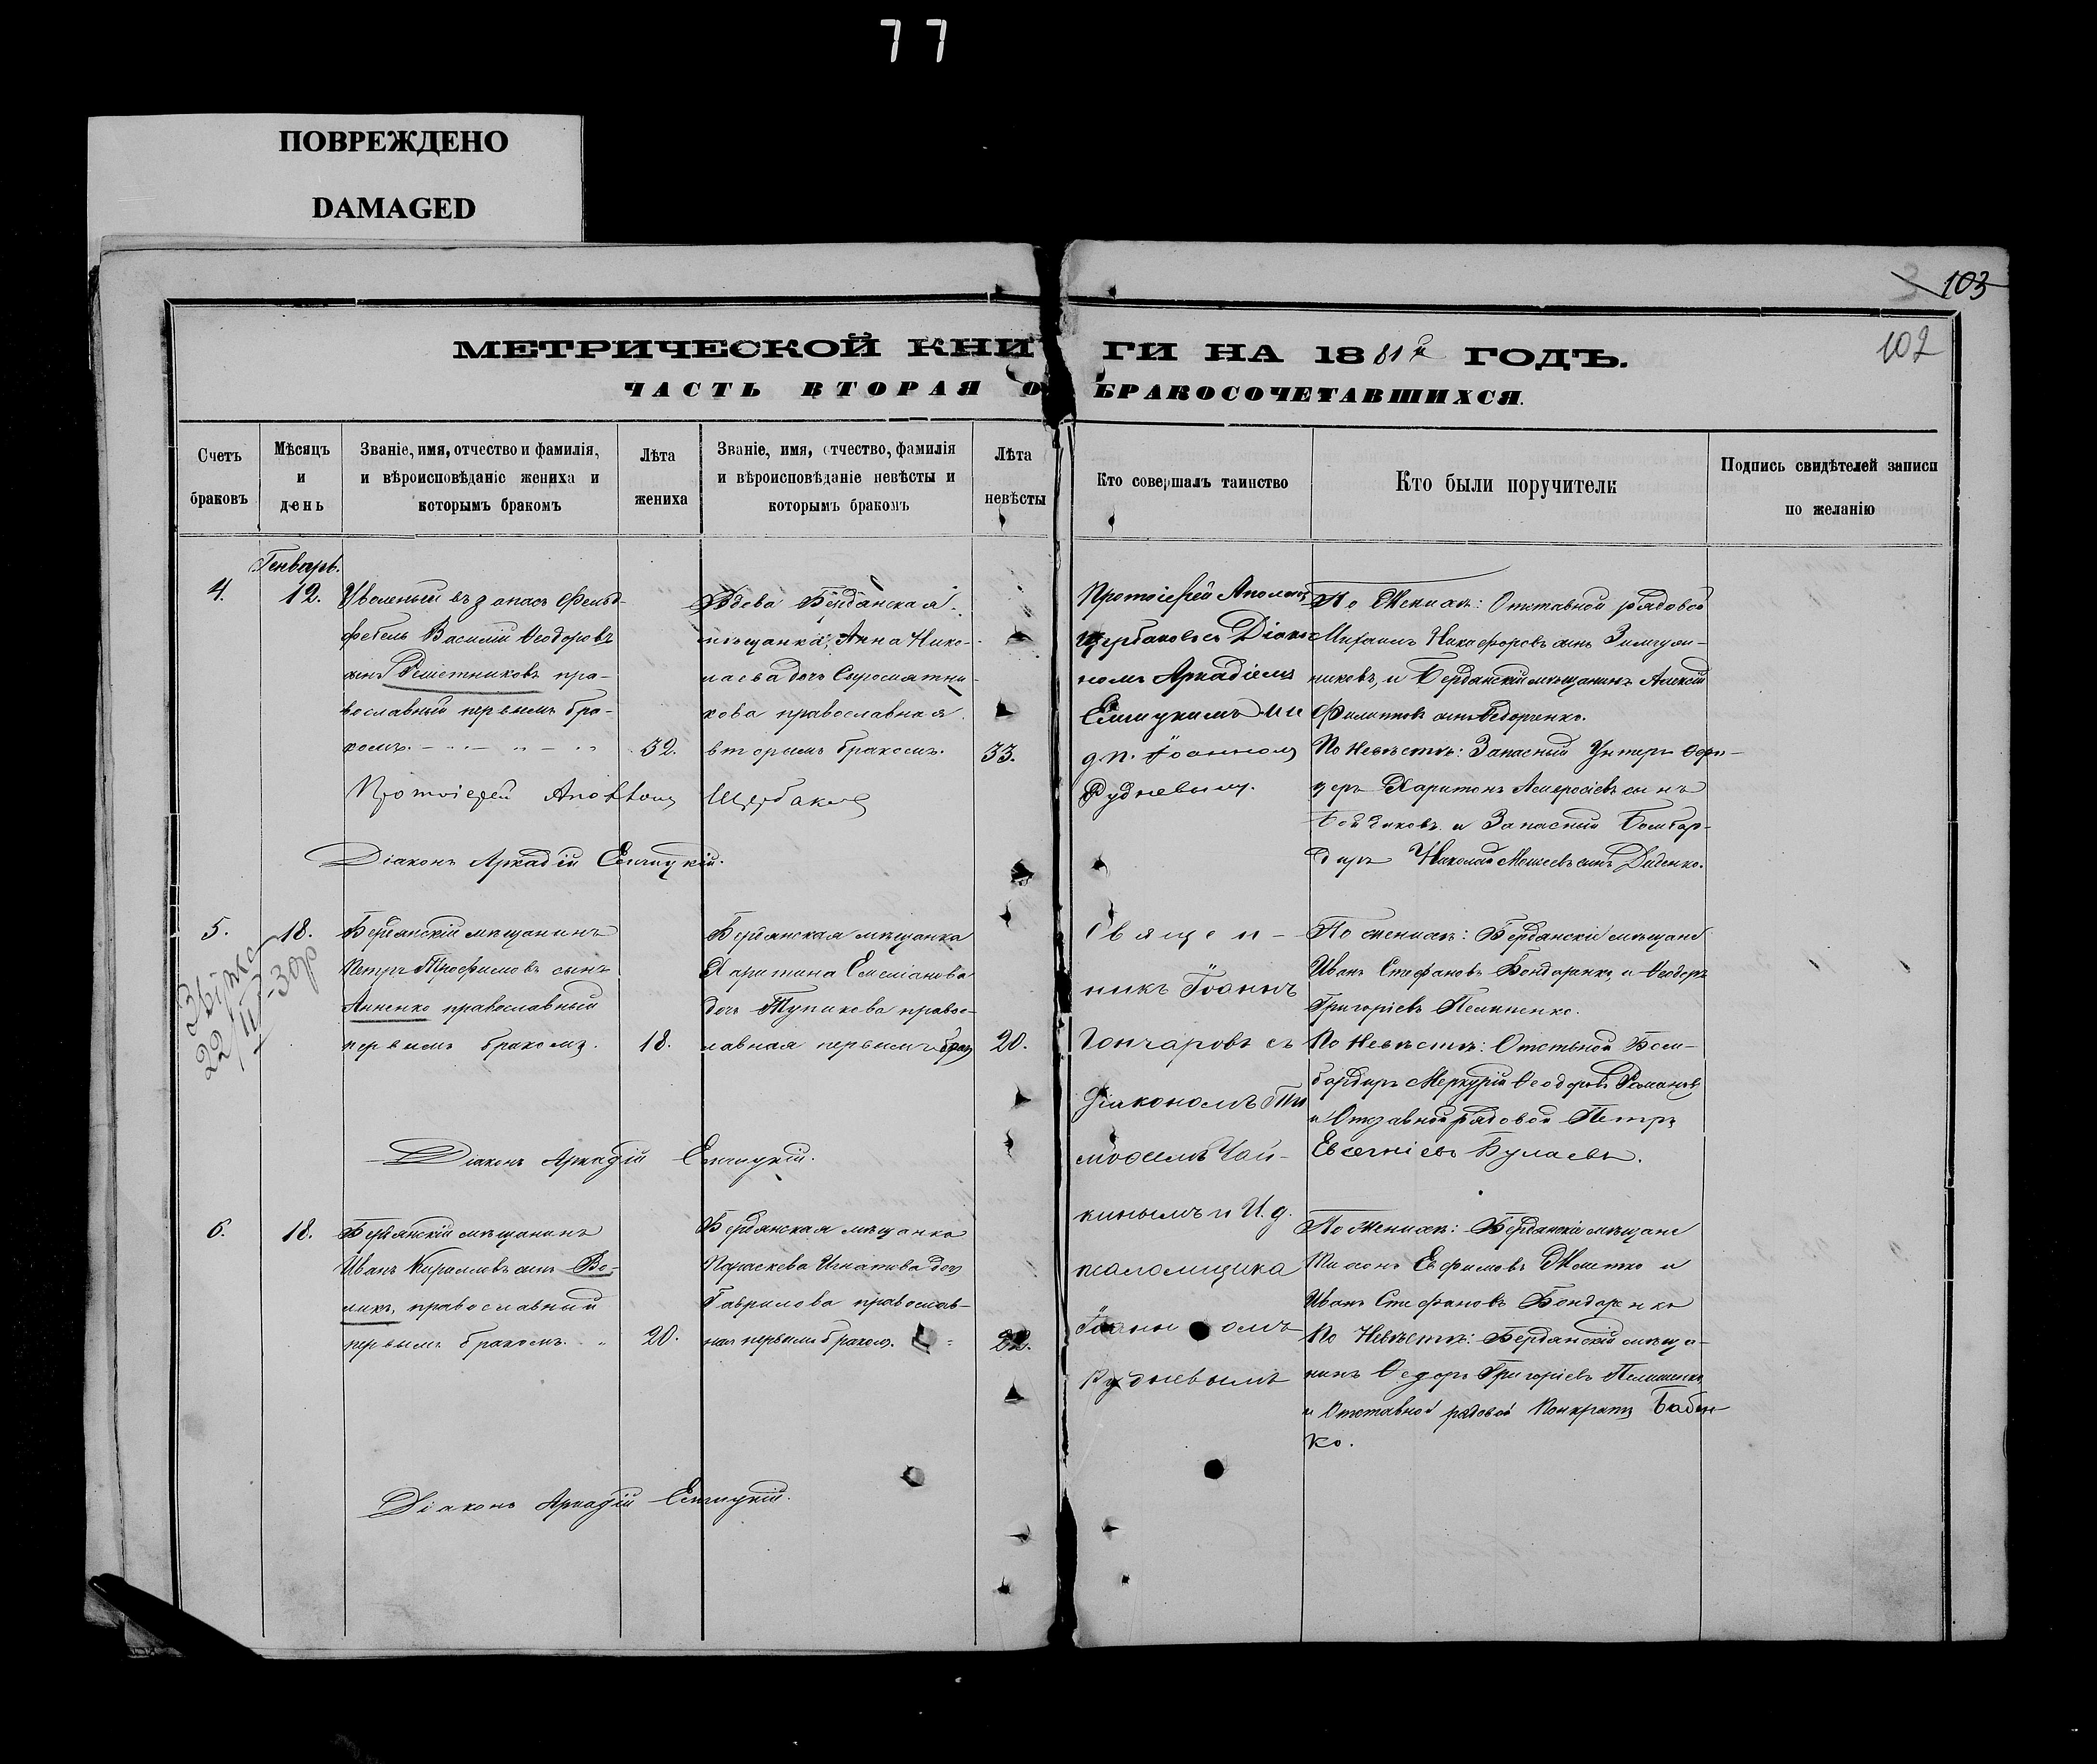 77
ПОВРЕЖДЕНО
DAMAGED
103
102
МЕТРИЧЕСКОЙ КНИГИ НА 1881й ГОДЪ.
ЧАСТЬ ВТОРАЯ О БРАКОСОЧЕТАВШИХСЯ.
Счетъ браковъ
Мѣсяцъ и день
Званіе, имя, отчество и фамилія,
и вѣроисповѣданіе жениха и
которымъ бракомъ
Лѣта жениха
Званіе, имя, отчество, фамилія
и вѣроисповѣданіе невѣсты и
которымъ бракомъ
Лѣта невѣсты
Кто совершалъ таинство
Кто были поручители
Подпись свидѣтелей записи
по желанію
Генварь.
4.
12.
Уволеный въ запасъ Фельд-
фебель Василій Ѳеодоровъ
сынъ Решетниковъ пра-
вославный первымъ бра-
комъ.
32.
Вдова Бердянская
мѣщанка, Анна Нико-
лаева дочь Сыромятни-
кова православная
вторымъ бракомъ.
33.
Протоіерей
Щербаковъ съ Діако-
номъ Аркадіемъ
и и
д. п. Іоанномъ
Рудневымъ.
По Женихѣ: Отставной рядовой
Михаилъ Никифоровъ сынъ
и Бердянскій мѣщанинъ Алексій
Филиповъ сынъ Ѳедоренко.
По Невѣстѣ: Запасный Унтеръ Офи-
церъ Харитонъ Амвросіевъ сынъ
и Запасный Бомбар-
диръ Николай сынъ Диденко.
Протоіерей Щербаковъ
Діаконъ Аркадій
5.
18.
Бердянскій мѣщанинъ
Петръ сынъ
Анненко православный
первымъ бракомъ.
18.
Бердянская мѣщанка
Харитина Емеліанова
дочь Тупикова право-
славная первымъ брак
20.
Звірка
22/II-30р
Священ-
никъ Іоаннъ
Гончаровъ съ
Діакономъ Ти-
моѳеемъ Чай-
кинымъ и И. д.
псаломщика
Іоанномъ
Рудневымъ
По женихѣ: Бердянскіе мѣщане
Иванъ Стефановъ Бондаренко, и Ѳеодоръ
Григоріевъ Пелипенко.
По Невѣстѣ: Отставной Бом-
бардиръ Меркурій Ѳеодоровъ Романовъ
и Отставной рядовой Петръ
Евсегніевъ Булаевъ.
Діаконъ Аркадій
6.
18.
Бердянскій мѣщанинъ
Иванъ Кириловъ сынъ Во-
ликъ, православный
первымъ бракомъ.
20.
Бердянская мѣщанка
Параскева Игнатова дочь
Гаврилова православ-
ная первымъ бракомъ.
22.
По Женихѣ: Бердянскіе мѣщане
Евфимовъ и
Иванъ Стефановъ Бондаренко
По Невѣстѣ: Бердянскій мѣща-
нинъ Ѳедоръ Григоріевъ Пелипенко
и Отставной рядовой Панкратъ Бабен-
ко.
Діаконъ Аркадій